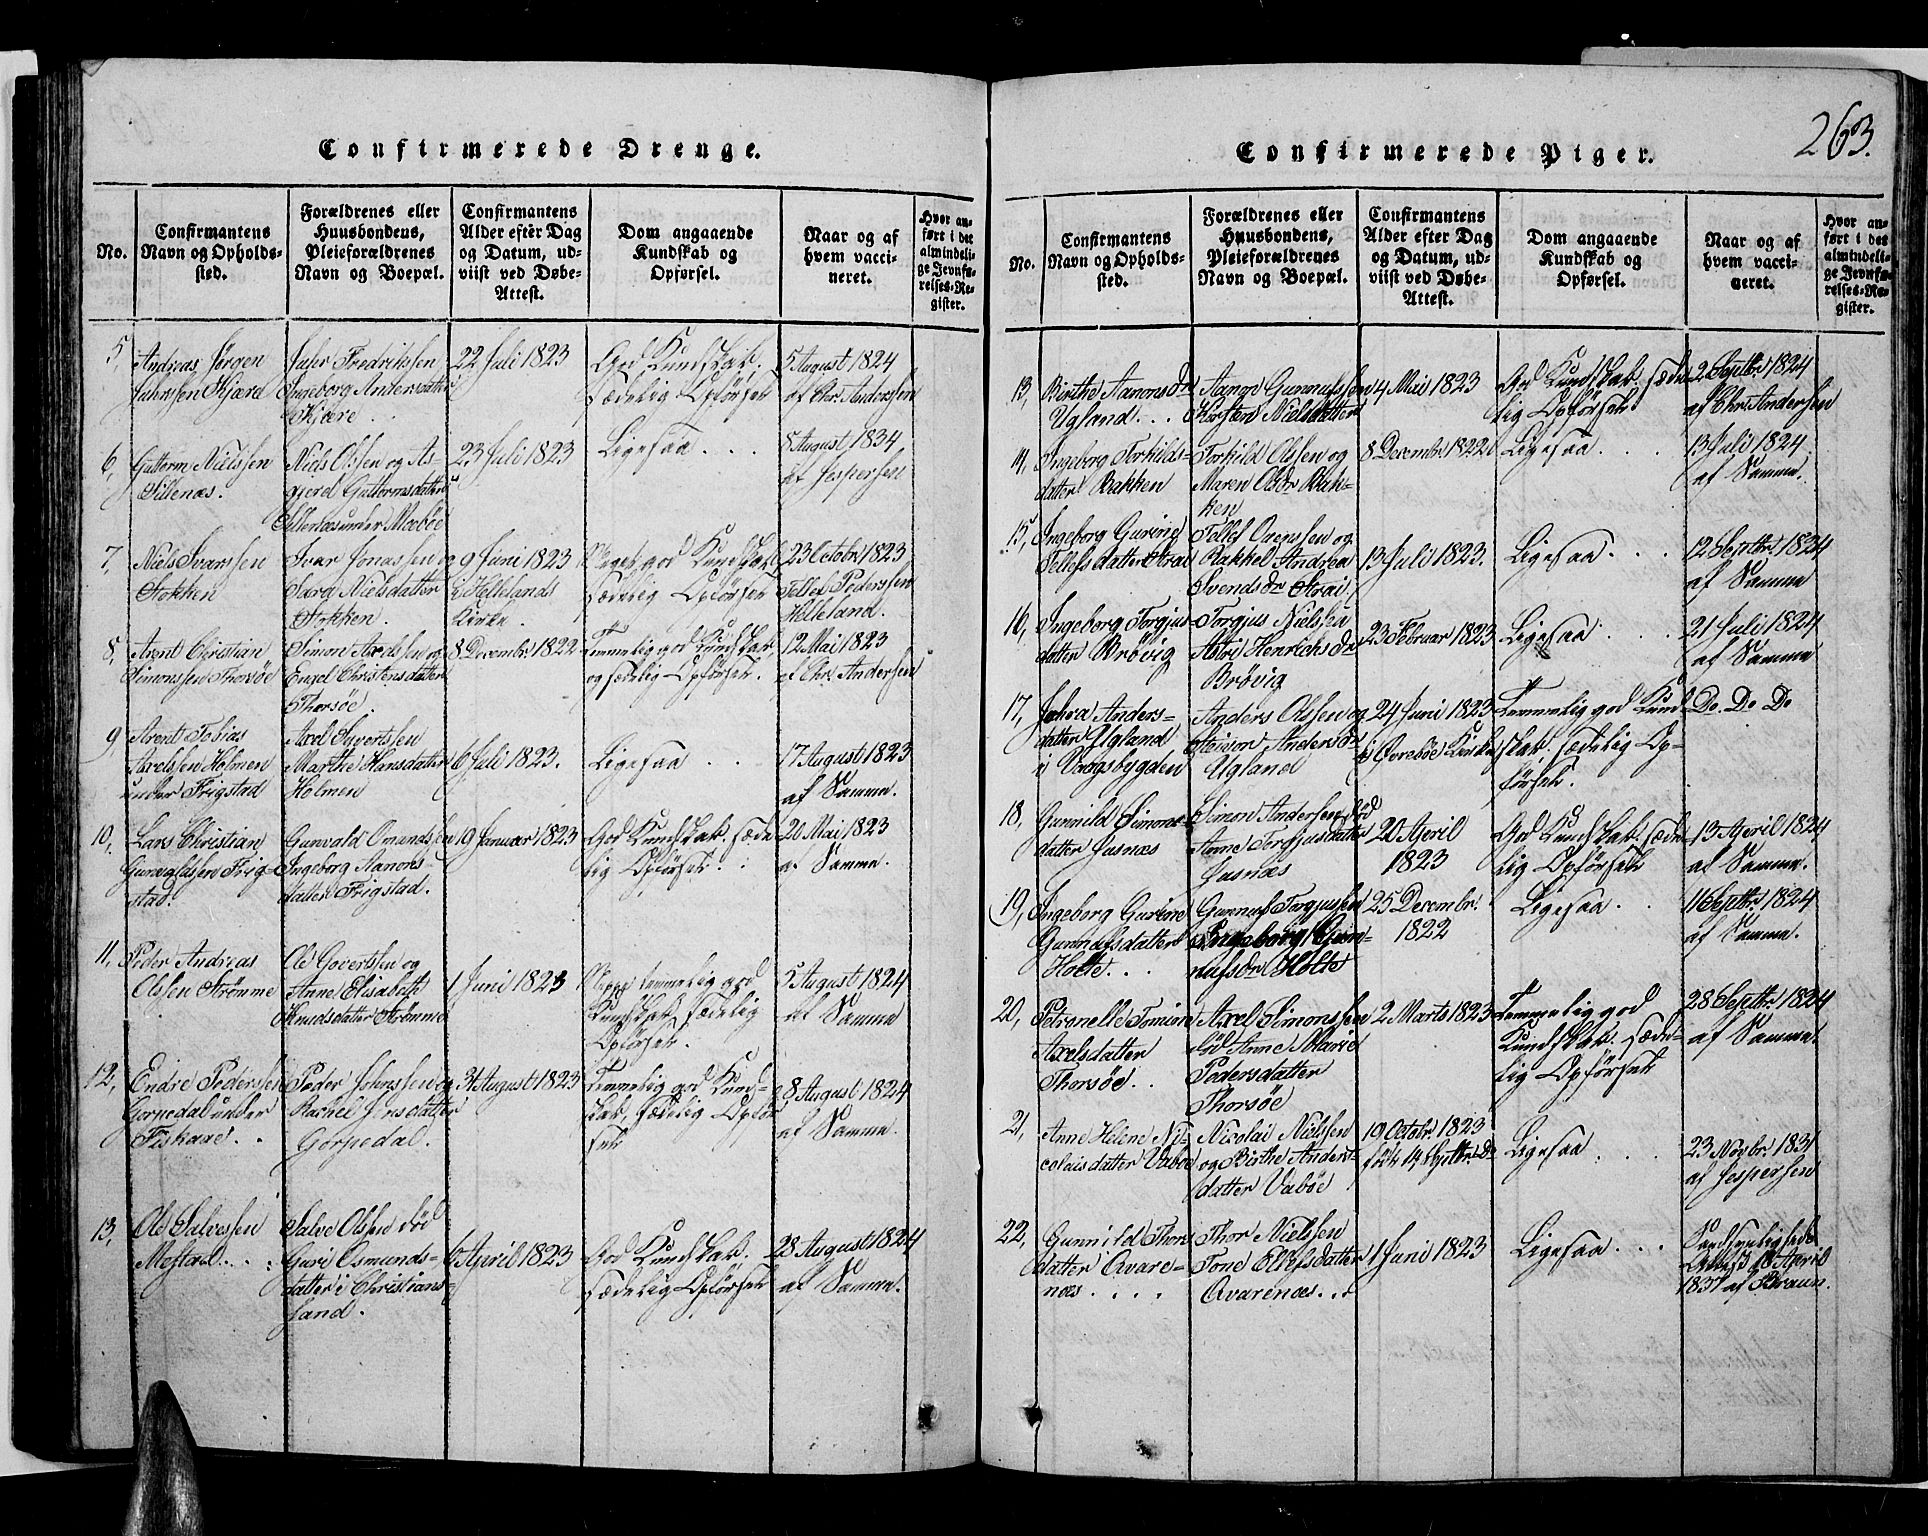 263.
Confirmerede Drenge.
No.
Confirmantens
Navn og Opholds-
sted.
Forældrenes eller
Huusbondens,
Pleieforældrenes
Navn og Boepæl.
Confirmantens
Alder efter Dag
og Datum, ud-
viist ved Døbe-
Attest.
Dom angaaende
Kundskab og
Opførsel.
Naar og af
hvem vacci-
neret.
Hvor an-
ført i det
almindeli-
ge Jevnfø-
relses-Re-
gister.
5,
Andreas Jørgen
Jahnsen Kjære
Jahr Fredrikssen
Ingeborg Andersdatter
Kjære.
22 Juli 1823
God Kundskab.
sædelig Opførsel
5 August 1824
af Chr. Anderssen
6,
Guttorm Nielssen
Sillenæs.
Niels Olssen og As-
gjerd Guttormsdatter
Sillenæs under Moebøe
23 Juli 1823
Ligesaa . . .
8 August 1834
af Jespersen
7,
Niels Ivarssen
Stokken
Ivar Jonassen og
Sara Nielsdatter
Stokken.
9 Juni 1823
i Hellelands
Kirke.
Meget god Kundskab
sædelig Opførsel
23 Octobr 1823
Tellef Pederssen
Helleland.
8,
Arent Christian
Simonssen Thorsöe
Simon Axelssen og
Engel Christensdatter
Thorsöe.
8 Decembr. 1822
Temmelig god Kundskab,
og sædelig Opførsel.
12 Mai 1823
af Chr. Andersen
9
Arent Tobias
Axelssen Holmen
under Frigstad
Axel Syvertssen
Marthe Hansdatter
Holmen
6 Juli 1823.
Ligesaa . .
17 August 1823
af Samme.
10,
Lars Christian
Gunvaldssen Frig-
stad.
Gunvald Omundssen
Ingeborg Aanons-
datter Frigstad.
19 Januar 1823
God Kundskab. sæde
lig Opførsel . .
20 Mai 1823
af Samme.
11,
Peder Andreas
Olssen Strømme
Ole Govertssen og
Anne Elisabeth
Knudsdatter Strømme
1 Juni 1823
temmelig god
Kundskab, sædelig
Opførsel.
5 August 1824
af Samme
12,
Endre Pederssen
Gorpedal under
Fiskaae. .
Peder Johnssen og
Rachel Jensdatter
Gorpedal.
31 August 1823
Temmelig god Kund-
skab, sædelig Opfør
sel
8 August 1824
af Samme.
13,
Ole Salvessen
Mestad. . . :
Salve Olssen død
Guri Osmunds-
datter i Christians-
sand.
6 April 1823
God Kundskab.
sædelig Opførsel
28 August 1824
af Samme.
Confirmerede Piger.
No.
Confirmantens
Navn og Opholds-
sted.
Forældrenes eller
Huusbondens,
Pleieforældrenes
Navn og Boepæl.
Confirmantens
Alder efter Dag
og Datum, ud-
viist ved Døbe-
Attest.
Dom angaaende
Kundskab og
Opførsel.
Naar og af
hvem vacci-
neret.
Hvor an-
ført i det
almindeli-
ge Jevnfø-
relses-Re-
gister.
13,
Birthe Aanonsdr
Ugland. . .
Aanon Gunnufssen
Kirsten Nielsdatter
4 Mai 1823
God Kundskab. sæde
lig Opførsel
2 Septbr 1824
af Chr. Andersen
14,
Ingeborg Torkilds-
datter Bakken
Torkild Olssen og
Maren Olsdr Bak-
ken
8 Decembr 1822
Ligesaa. . . .
13 Juli 1824
af Samme.
15,
Ingeborg Gurine
Tellefsdatter Strai
Tellef Ovenssen og
Rakkel Andrea
Svendsdr Strai.
13 Juli 1823.
Ligesaa . . .
12 Septbr. 1824
af Samme
16,
Ingeborg Torgjus-
datter Brövig
Torgjus Nielsen
Astri Henrichsdr
Brövig
23 Februar 1823
Ligesaa . . .
21 Juli 1824
af Samme
17,
Anders-
datter Ugland
i Vaagsbygden
Anders Olssen og
Andersdr
Ugland
24 Juni 1823
i Övreböe Kirke
Temmelig god Kund
skab. sædelig Op-
førsel.
Do. Do Do
18,
Gunnild Simons-
datter Jusnæs
Simon Anderssen død
Anne Torgjusdatter
Jusnæs
20 April
1823
God Kundskab. sæde
lig Opførsel
13 April 1824
af Samme.
19,
Ingeborg Gurine
Gunnufsdatter
Holte. . .
Gunnuf Torgjussen
Ingeborg Gun-
nufsdr Holte
25 Decembr.
1822
Ligesaa . .
11 Septbr. 1824
af Samme.
20,
Petronelle Tomine
Axelsdatter
Thorsöe. .
Axel Simonssen
Anne Marie
Pedersdatter
Thorsöe
2 Marts 1823
Temmelig god
Kundskab. sæde-
lig Opførsel
28 Septbr. 1824
af Samme.
21,
Anne Helene Ni-
colaisdatter Vaböe
Nicolai Nielssen
og Birthe Anders-
datter Vaböe
19 Octobr 1823
föd 14 Septbr. do
Ligesaa . . .
23 Novbr. 1831
af Jespersen
22,
Gunnild Thors
datter Qvare-
næs . . . .
Thor Nielssen
Tone Ellefsdatter
Qvarenæs . . .
1 Juni 1823
Ligesaa . . .
Attest 18 April
1837 af Braun.